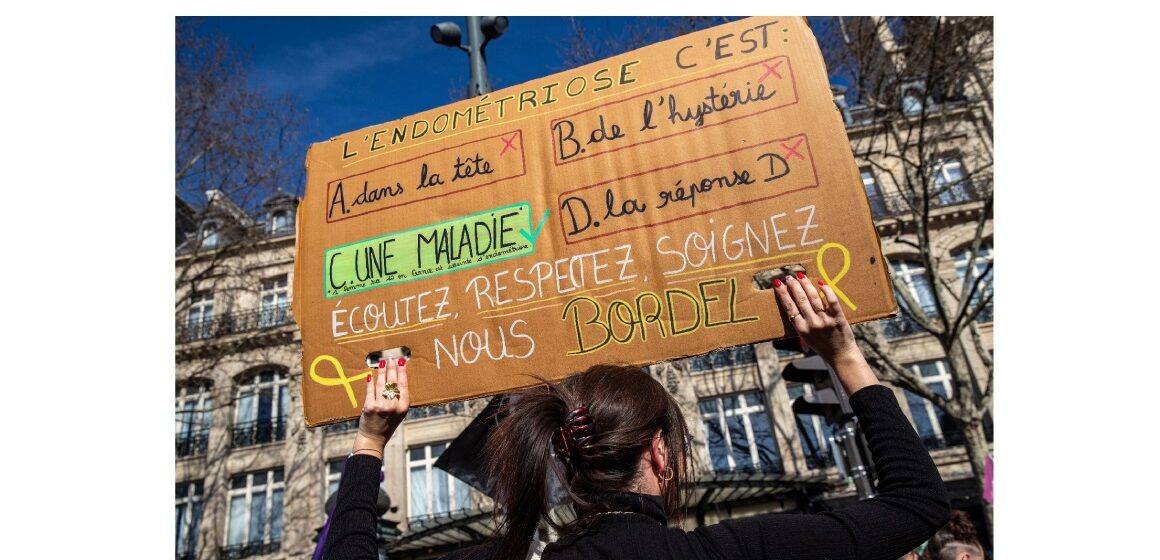 L'ENDOMÉTRIOSE C'EST :
A. dans la tête
B. de l'hystérie
C. UNE MALADIE
1 femme sur 10 en France est atteinte d'endométriose
D. la réponse D
ÉCOUTEZ, RESPECTEZ, SOIGNEZ
NOUS BORDEL